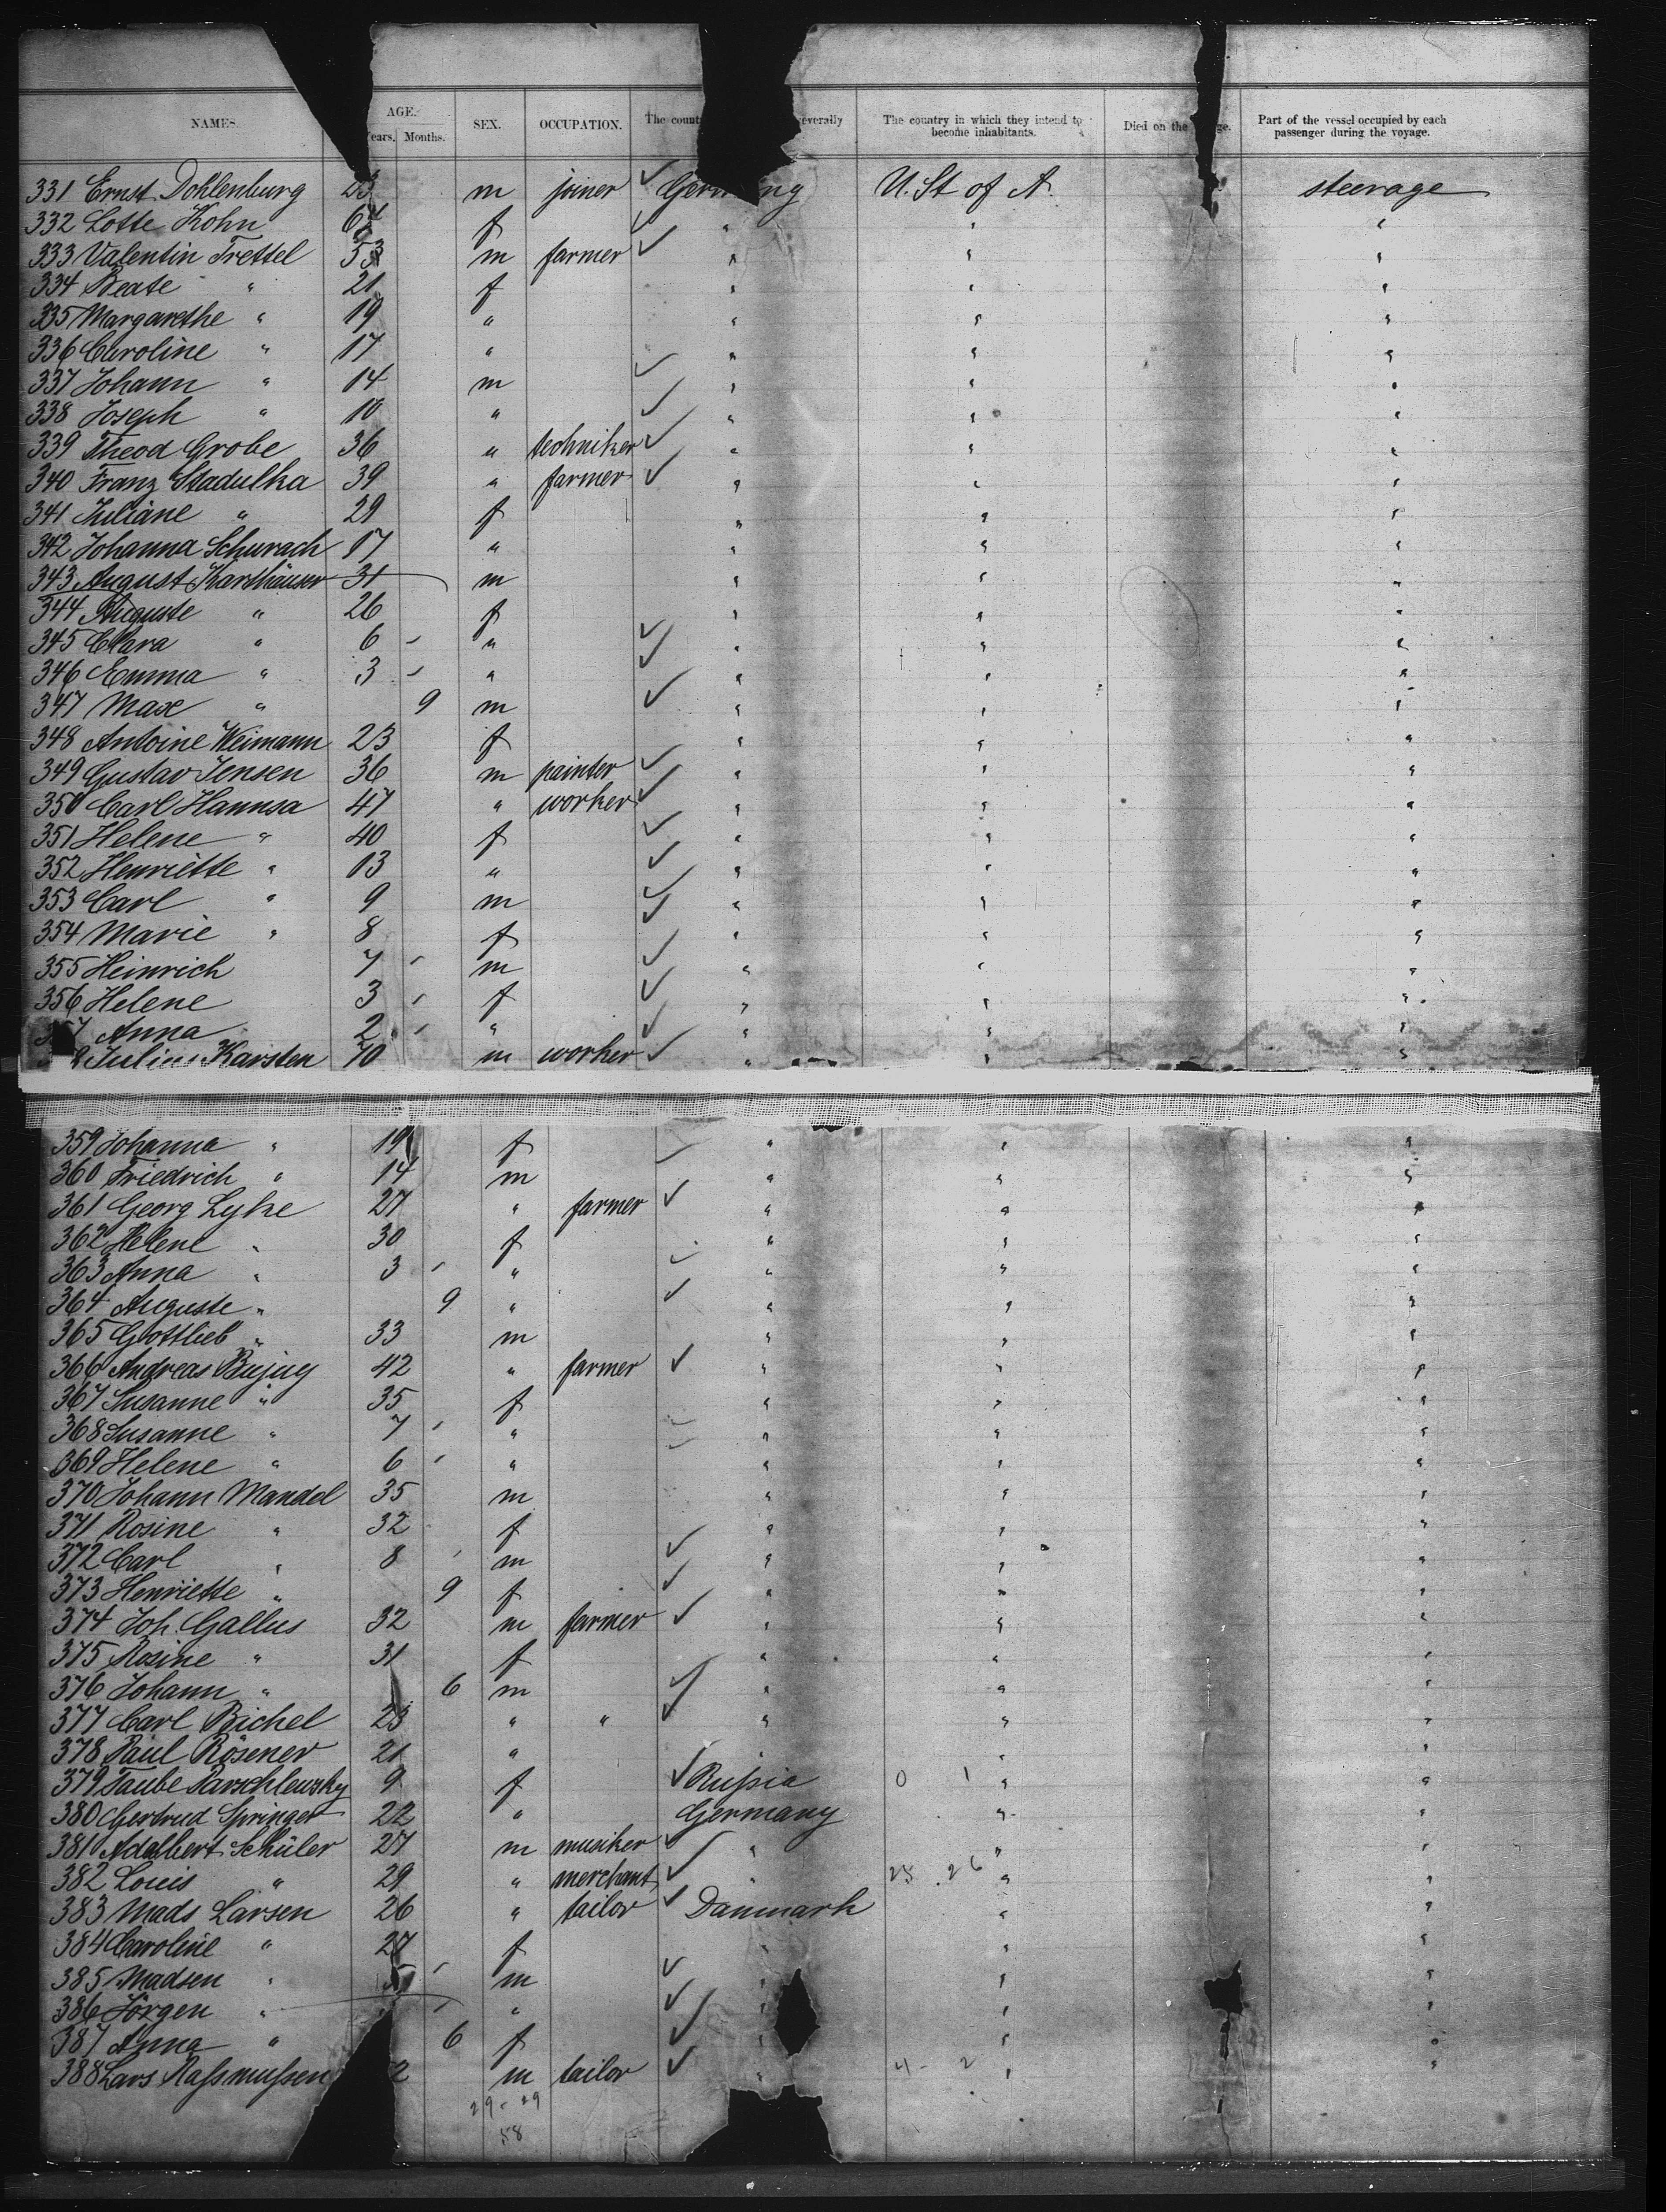 NAMES. AGE. Years. Months. SEX. OCCUPATION. The country severally The country in which they intend to become inhabitants. Died on the Part of the vessel occupied by each passenger during the voyage.
331 Ernst Dohlenburg 23 m joiner Germany U. St of A steerage
332 Lotte Kohn f " " "
333 Valentin Trettel 53 m farmer " " "
334 Beate " 21 f " " "
335 Margarethe " 19 " " " "
336 Caroline " 17 " " " "
337 Johann " 14 m " " "
338 Joseph " 10 " " " "
339 Theod Grobe 36 " techniker " " "
340 Franz Stadulka 39 " farmer " " "
341 Juliane " 29 f " " "
342 Johanna Schurach 17 " " " "
343 August Karthäuser 31 m " " "
344 Auguste " 26 f " " "
345 Clara " 6 - " " " "
346 Emma " 3 - " " " "
347 Max " 9 m " " "
348 Antoine Weimann 23 f " " "
349 Gustav Jensen 36 m painter " " "
350 Carl Hannsa 47 " worker " " "
351 Helene " 40 f " " "
352 Henriette " 13 " " " "
353 Carl " 9 m " " "
354 Marie " 8 f " " "
355 Heinrich 7 - m " " "
356 Helene 3 - f " " "
Anna 2 - " " " "
Julius Karsten 70 m worker " " "
359 Johanna " 19 f " " "
360 Friedrich " 14 m " " "
361 Georg Lyhe 27 " farmer " " "
362 Helene " 30 f " " "
363 Anna " 3 - " " " "
364 Auguste " 9 " " " "
365 Gottlieb " 33 m " " "
366 Andreas Bujug 42 " farmer " " "
367 Susanne " 35 f " " "
368 Susanne " 7 - " " " "
369 Helene " 6 - " " " "
370 Johann Mandel 35 m " " "
371 Rosine " 32 f " " "
372 Carl " 8 - m " " "
373 Henriette " 9 f " " "
374 Joh. Gallus 32 m farmer " " "
375 Rosine " 31 f " " "
376 Johann " 6 m " " "
377 Carl Bichel 23 " " " " "
378 Paul Rösener 21 " " "
379 Taube Parschlewsky 9 f Russia 0 1 " "
380 Gertrud Springer 22 " Germany " "
381 Adalbert Schüler 27 m musiker " " "
382 Louis " 29 " merchant " 25 . 26 " "
383 Mads Larsen 26 " tailor Danmark " "
384 Caroline " 27 f " " "
385 Madsen " 5 - m " " "
386 Jörgen " - " " " "
387 Anna " 6 f " " "
388 Lars Rassmussen 2 m tailor " 4 - 2 " "
29 - 29
58